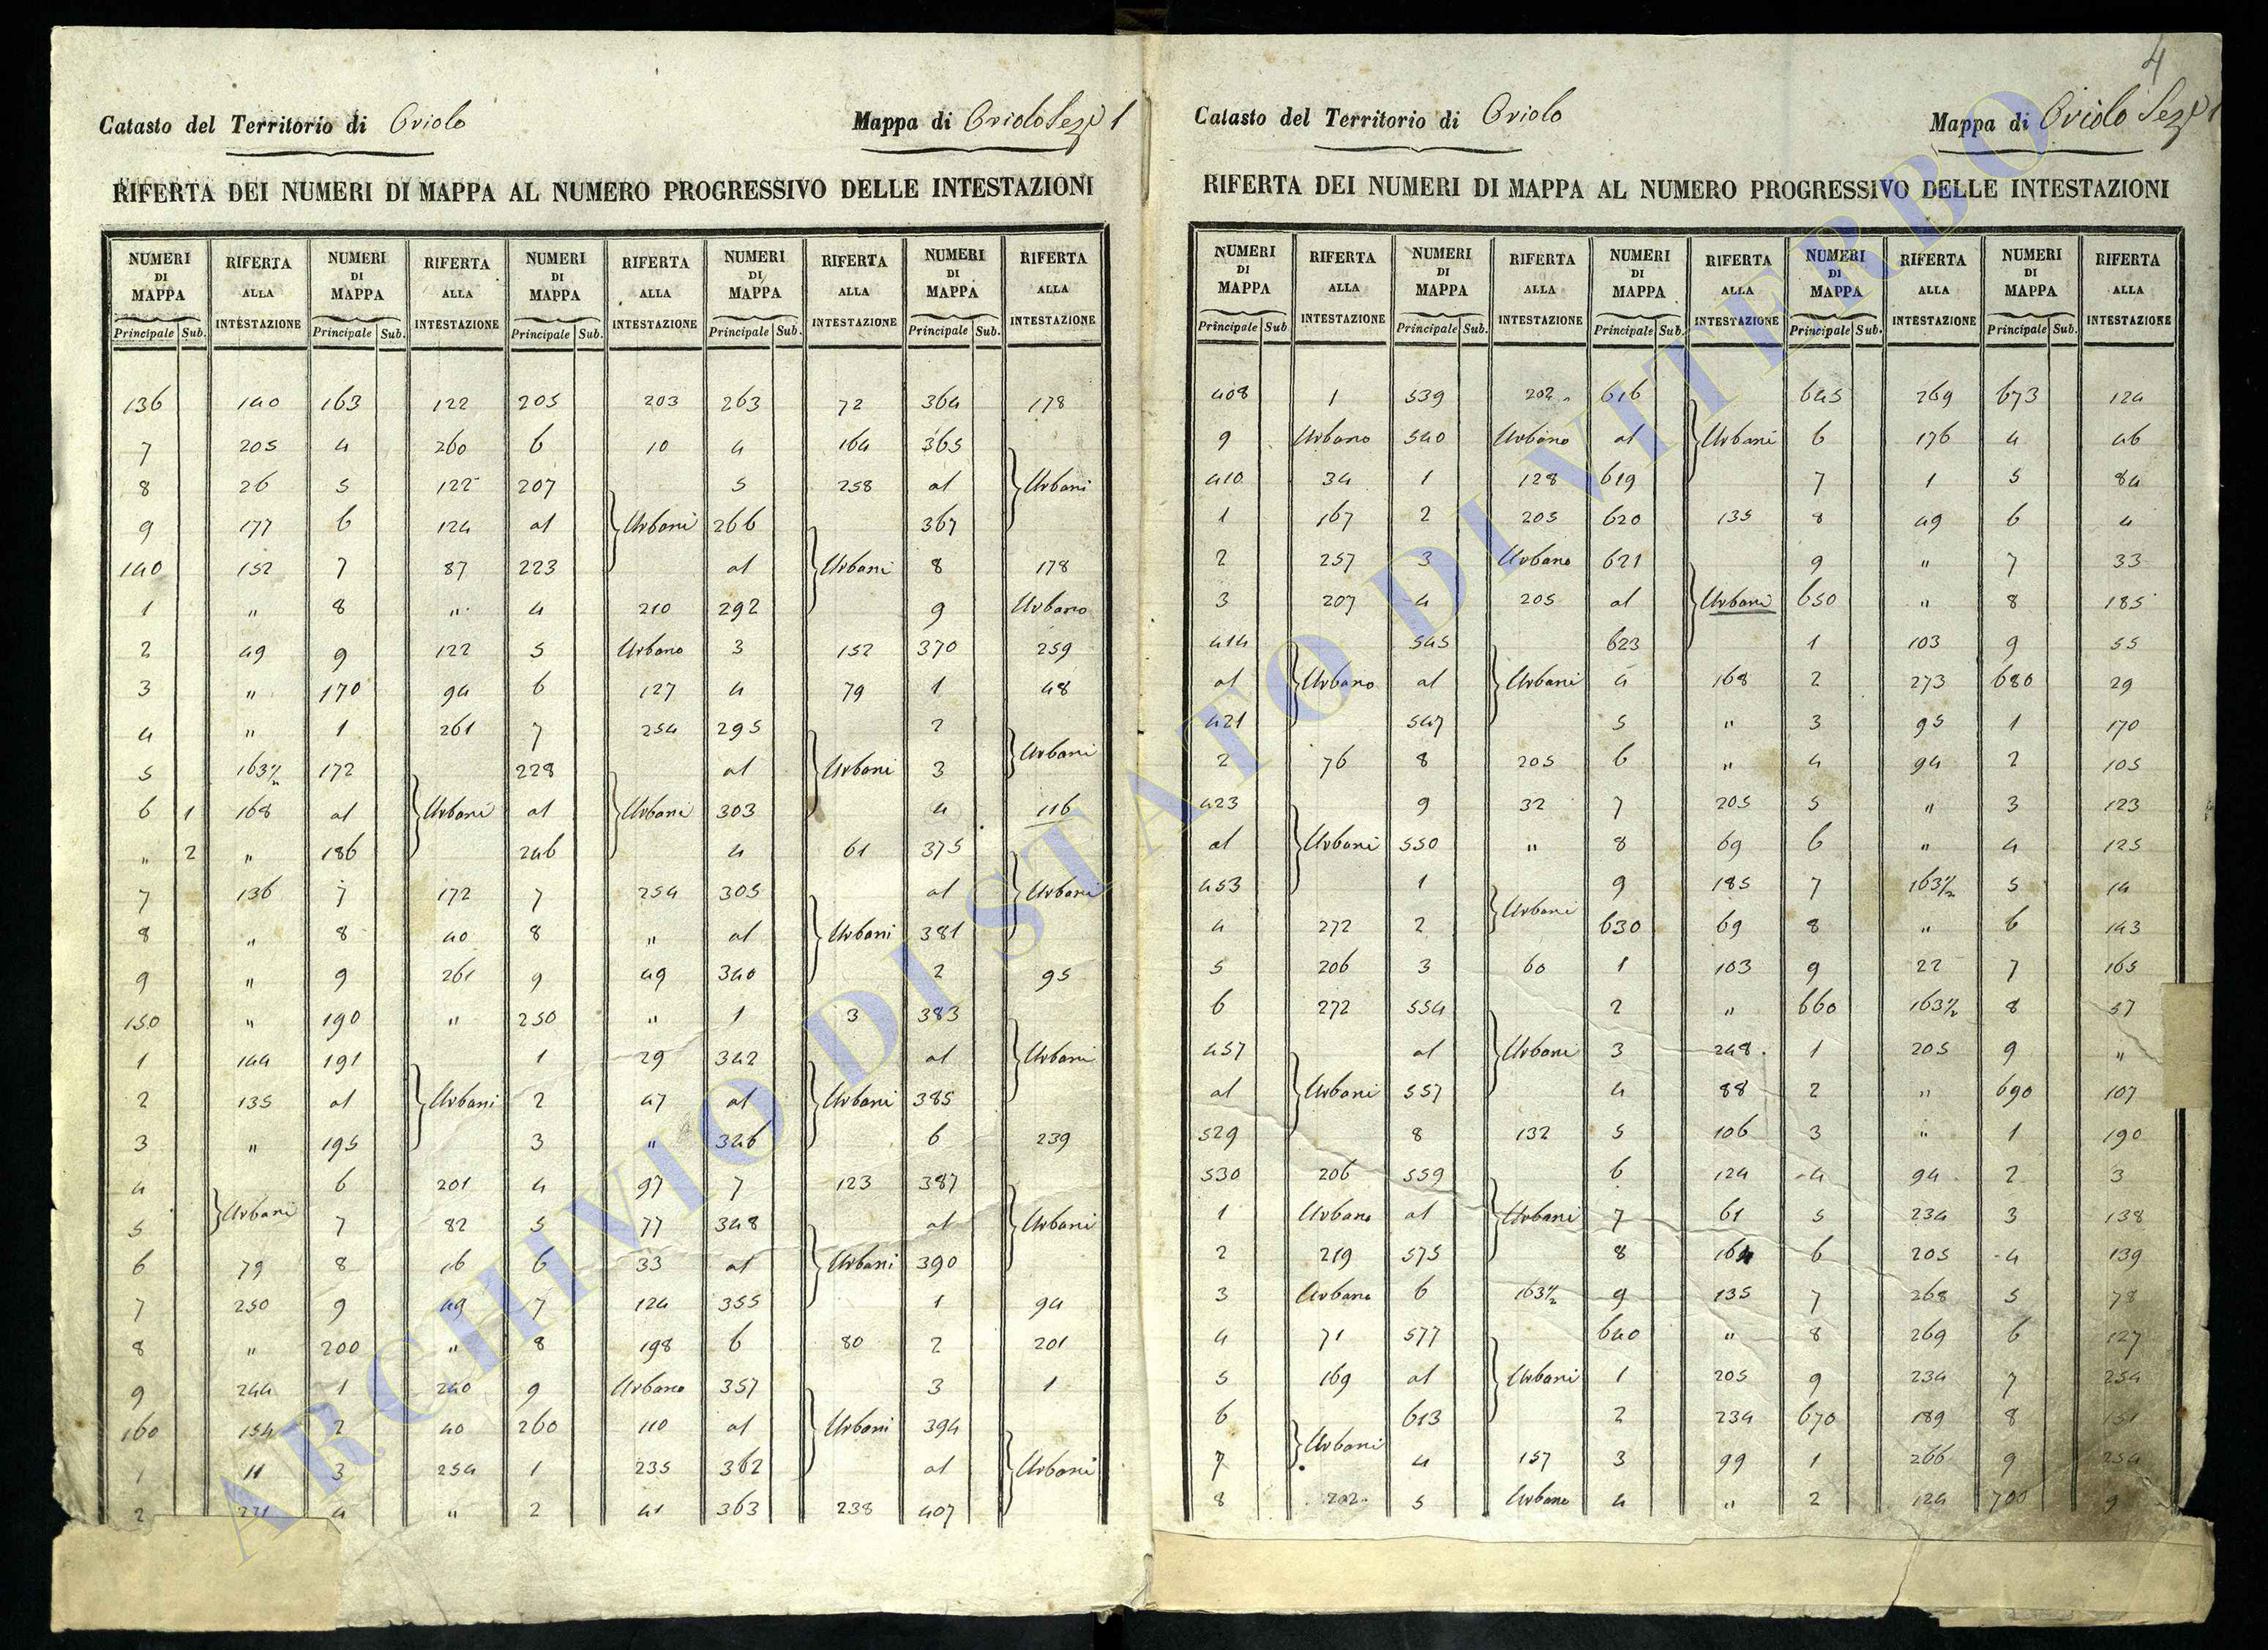 4
Catasto del Territorio di Oriolo Mappa di Oriolo Sez.e 1
RIFERTA DEI NUMERI DI MAPPA AL NUMERO PROGRESSIVO DELLE INTESTAZIONI
NUMERI DI MAPPA RIFERTA ALLA INTESTAZIONE NUMERI DI MAPPA RIFERTA ALLA INTESTAZIONE NUMERI DI MAPPA RIFERTA ALLA INTESTAZIONE NUMERI DI MAPPA RIFERTA ALLA INTESTAZIONE NUMERI DI MAPPA RIFERTA ALLA INTESTAZIONE
Principale Sub. Principale Sub. Principale Sub. Principale Sub. Principale Sub.
136 140 163 122 205 203 263 72 364 178
7 205 4 260 6 10 4 164 365
8 26 5 122 207 5 258 al Urbani
9 177 6 124 al Urbani 266 367
140 152 7 87 223 al Urbani 8 178
1 " 8 " 4 210 292 9 Urbano
2 49 9 122 5 Urbano 3 152 370 259
3 " 170 94 6 127 4 79 1 48
4 " 1 261 7 254 295 2
5 163½ 172 228 al Urbani 3 Urbani
6 1 168 al Urbani al Urbani 303 4 116
" 2 " 186 246 4 61 375
7 136 7 172 7 254 305 al Urbani
8 " 8 40 8 " al Urbani 381
9 " 9 261 9 49 340 2 95
150 " 190 " 250 " 1 3 383
1 144 191 1 29 342 al Urbani
2 135 al Urbani 2 47 al Urbani 385
3 " 195 3 " 346 6 239
4 6 201 4 97 7 123 387
5 Urbani 7 82 5 77 348 al Urbani
6 79 8 16 6 33 al Urbani 390
7 250 9 49 7 124 355 1 94
8 " 200 " 8 198 6 80 2 201
9 244 1 240 9 Urbano 357 3 1
160 154 2 40 260 110 al Urbani 394
1 11 3 254 1 235 362 al Urbani
2 271 4 " 2 41 363 238 407
Catasto del Territorio di Oriolo Mappa di Oriolo Sez.e 1
RIFERTA DEI NUMERI DI MAPPA AL NUMERO PROGRESSIVO DELLE INTESTAZIONI
NUMERI DI MAPPA RIFERTA ALLA INTESTAZIONE NUMERI DI MAPPA RIFERTA ALLA INTESTAZIONE NUMERI DI MAPPA RIFERTA ALLA INTESTAZIONE NUMERI DI MAPPA RIFERTA ALLA INTESTAZIONE NUMERI DI MAPPA RIFERTA ALLA INTESTAZIONE
Principale Sub. Principale Sub. Principale Sub. Principale Sub. Principale Sub.
408 1 539 202 616 645 269 673 124
9 Urbano 540 Urbano al Urbani 6 176 4 46
410 34 1 128 619 7 1 5 84
1 167 2 205 620 135 8 49 6 4
2 257 3 Urbano 621 9 " 7 33
3 207 4 205 al Urbani 650 " 8 185
414 545 623 1 103 9 55
al Urbano al Urbani 4 168 2 273 680 29
421 547 5 " 3 95 1 170
2 76 8 205 6 " 4 94 2 105
423 9 32 7 205 5 " 3 123
al Urbani 550 " 8 69 6 " 4 125
453 1 Urbani 9 185 7 163½ 5 14
4 272 2 630 69 8 " 6 143
5 206 3 60 1 103 9 22 7 165
6 272 554 2 " 660 163½ 8 57
457 al Urbani 3 248 1 205 9 "
al Urbani 557 4 88 2 " 690 107
529 8 132 5 106 3 " 1 190
530 206 559 6 124 4 94 2 3
1 Urbano al Urbani 7 61 5 234 3 138
2 219 575 8 164 6 205 4 139
3 Urbano 6 163½ 9 135 7 268 5 78
4 71 577 640 " 8 269 6 127
5 169 al Urbani 1 205 9 234 7 254
6 613 2 234 670 189 8 151
7 Urbani 4 157 3 99 1 266 9 254
8 202 5 Urbano 4 " 2 124 700 9
ARCHIVIO DI STATO DI VITERBO